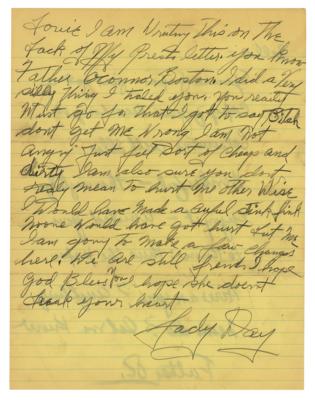 Louie I am Writing This on The
back of My Priests letter. you know
Father O'connor Boston I did a Very
silly Thing I called you. You really
Must go for that I got to say Bitch
dont get Me Wrong I am Not
angry Just feel sort of cheap and
dirty I am also sure you dont
realy mean to hurt Me other Wise
I Would have Made a awful Stink
Noone Would have got hurt but Me
I am going to make a few changes
here. We are still friends I hope
God Bless You I hope she doesnt
break your heart
Lady Day